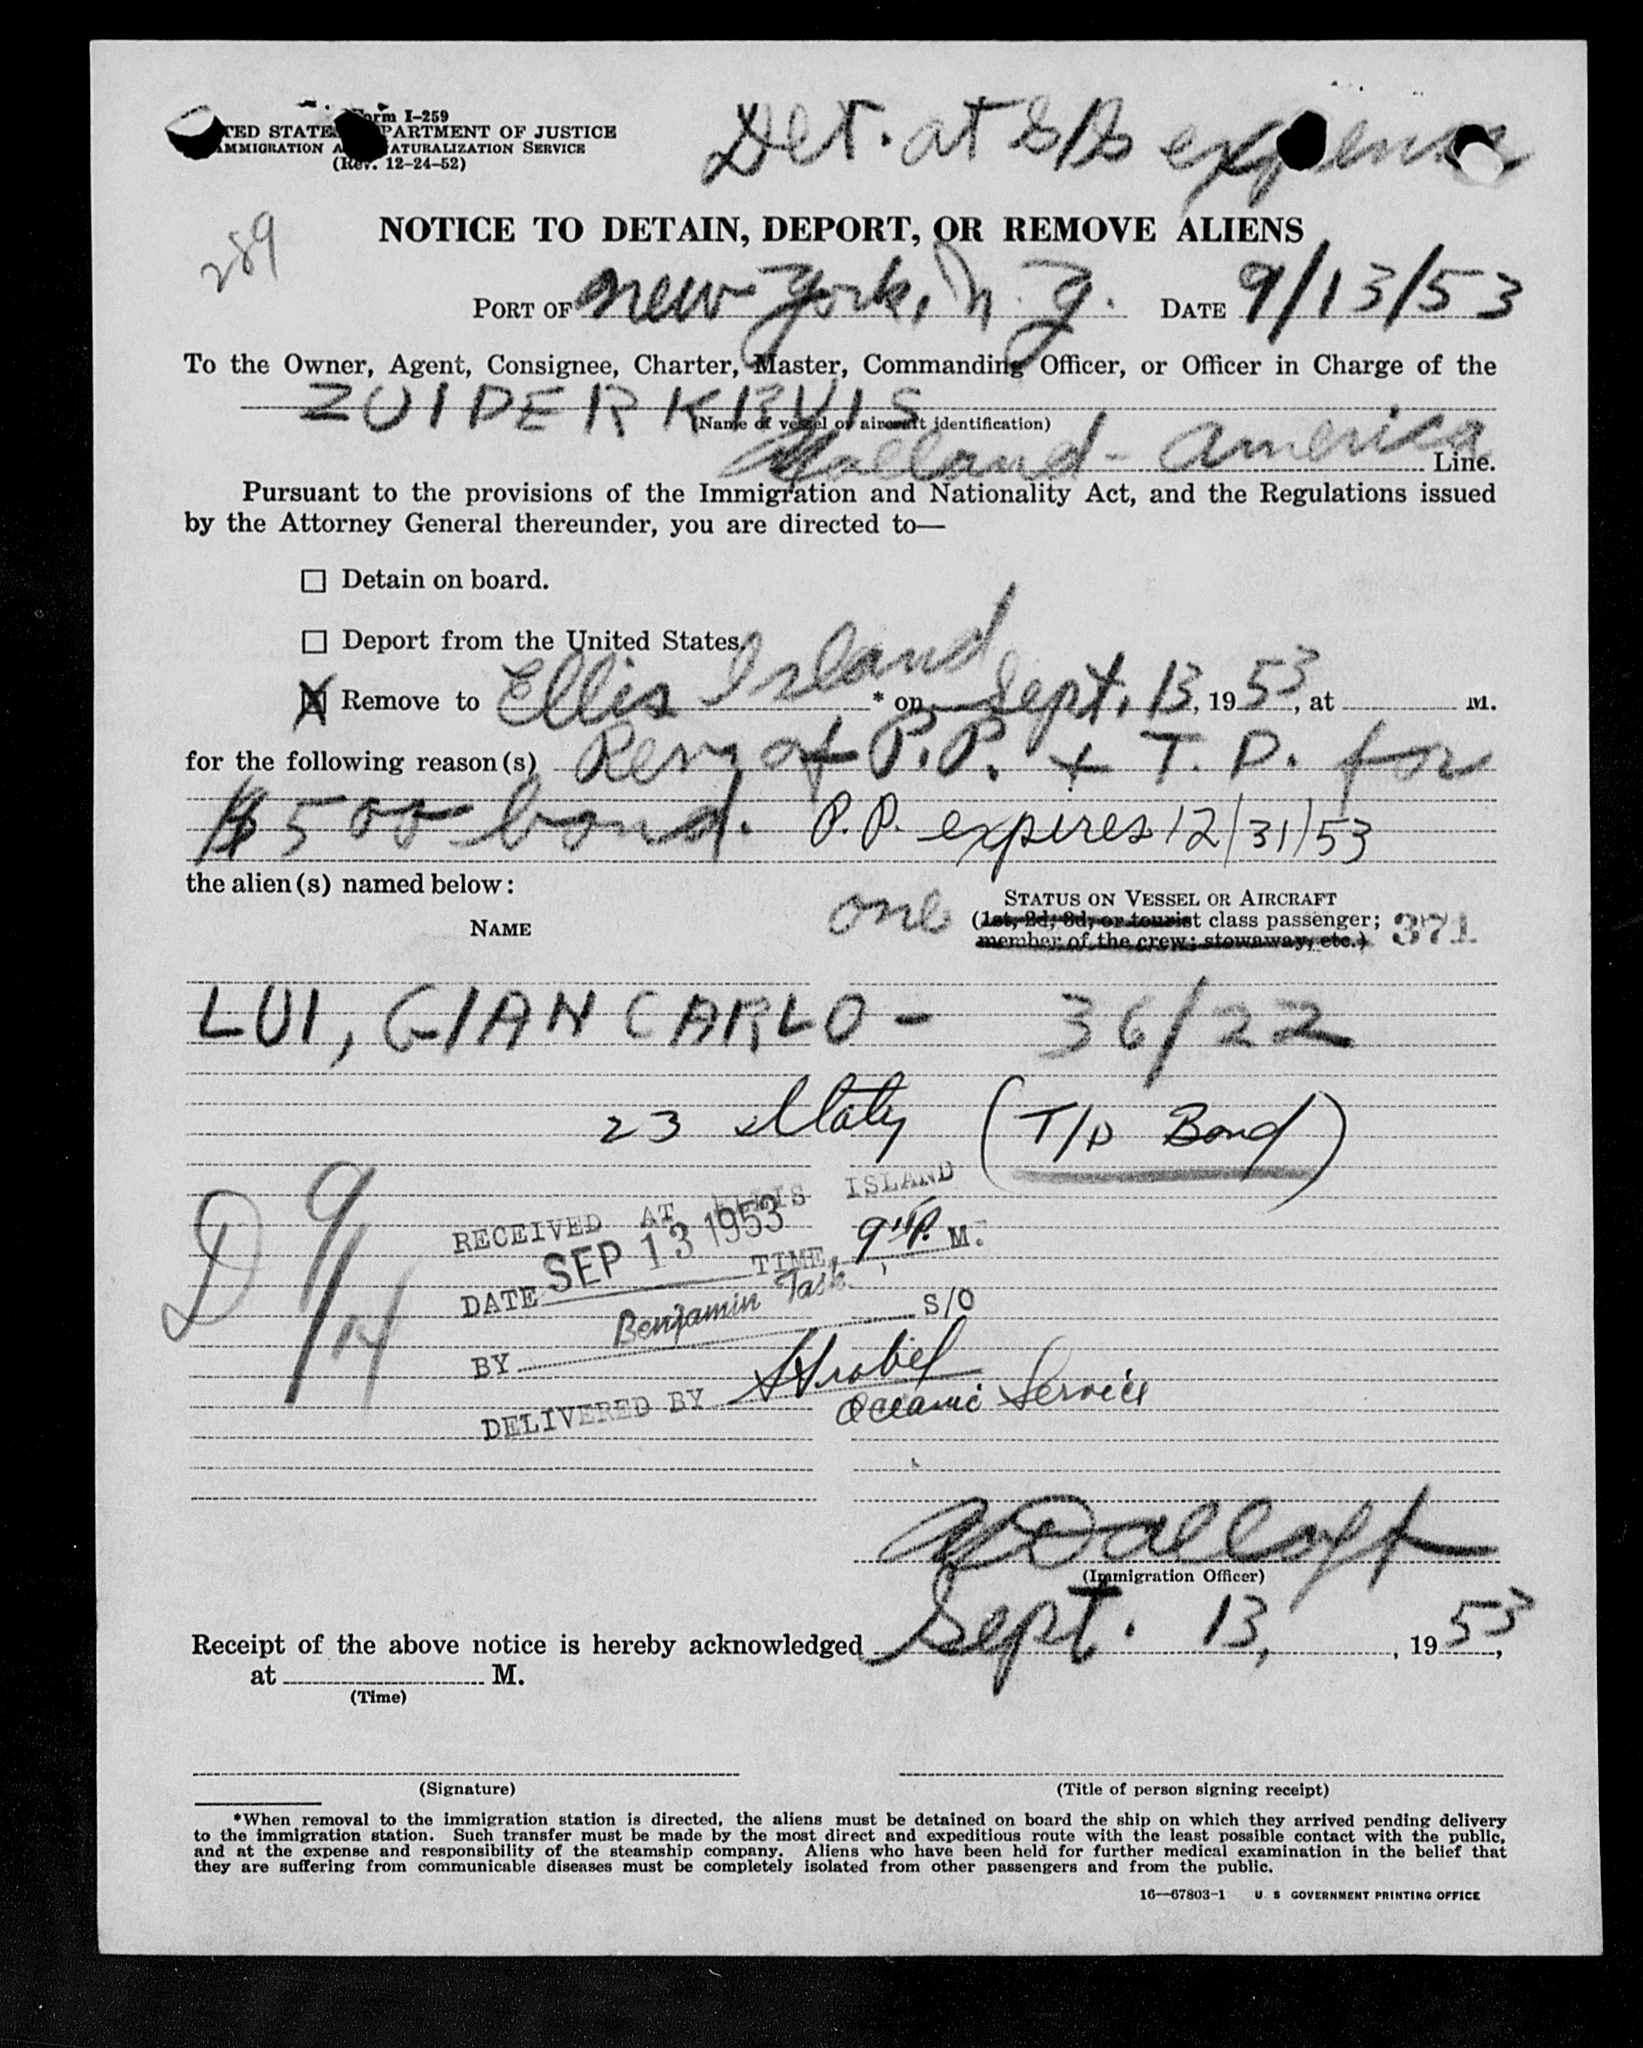 Form I-259
UNITED STATES DEPARTMENT OF JUSTICE
IMMIGRATION AND NATURALIZATION SERVICE
(Rev. 12-24-52)
Det. at S/S expense
289
NOTICE TO DETAIN, DEPORT, OR REMOVE ALIENS
PORT OF New York, N.Y. DATE 9/13/53
To the Owner, Agent, Consignee, Charter, Master, Commanding Officer, or Officer in Charge of the
ZUIDERKRUIS
(Name of vessel or aircraft identification)
Holland-America Line.
Pursuant to the provisions of the Immigration and Nationality Act, and the Regulations issued
by the Attorney General thereunder, you are directed to—
Detain on board.
Deport from the United States.
X Remove to Ellis Island * on Sept. 13, 1953, at M.
for the following reason(s) of P.P. + T.D. for
$500 bond. P.P. expires 12/31/53
the alien(s) named below:
NAME
one
STATUS ON VESSEL OR AIRCRAFT
(1st, 2d, 3d, or tourist class passenger;
member of the crew; stowaway, etc.)
371
LUI, GIAN CARLO - 36/22
23 Italy (T/D Bond)
D 9/14
RECEIVED AT ELLIS ISLAND
DATE SEP 13 1953 TIME 9 P. M.
BY Benjamin Task S/O
DELIVERED BY Strobel
Oceanic Service
(Immigration Officer)
Receipt of the above notice is hereby acknowledged Sept. 13, , 1953,
at M.
(Time)
(Signature)
(Title of person signing receipt)
*When removal to the immigration station is directed, the aliens must be detained on board the ship on which they arrived pending delivery
to the immigration station. Such transfer must be made by the most direct and expeditious route with the least possible contact with the public,
and at the expense and responsibility of the steamship company. Aliens who have been held for further medical examination in the belief that
they are suffering from communicable diseases must be completely isolated from other passengers and from the public.
16—67803-1 U S GOVERNMENT PRINTING OFFICE